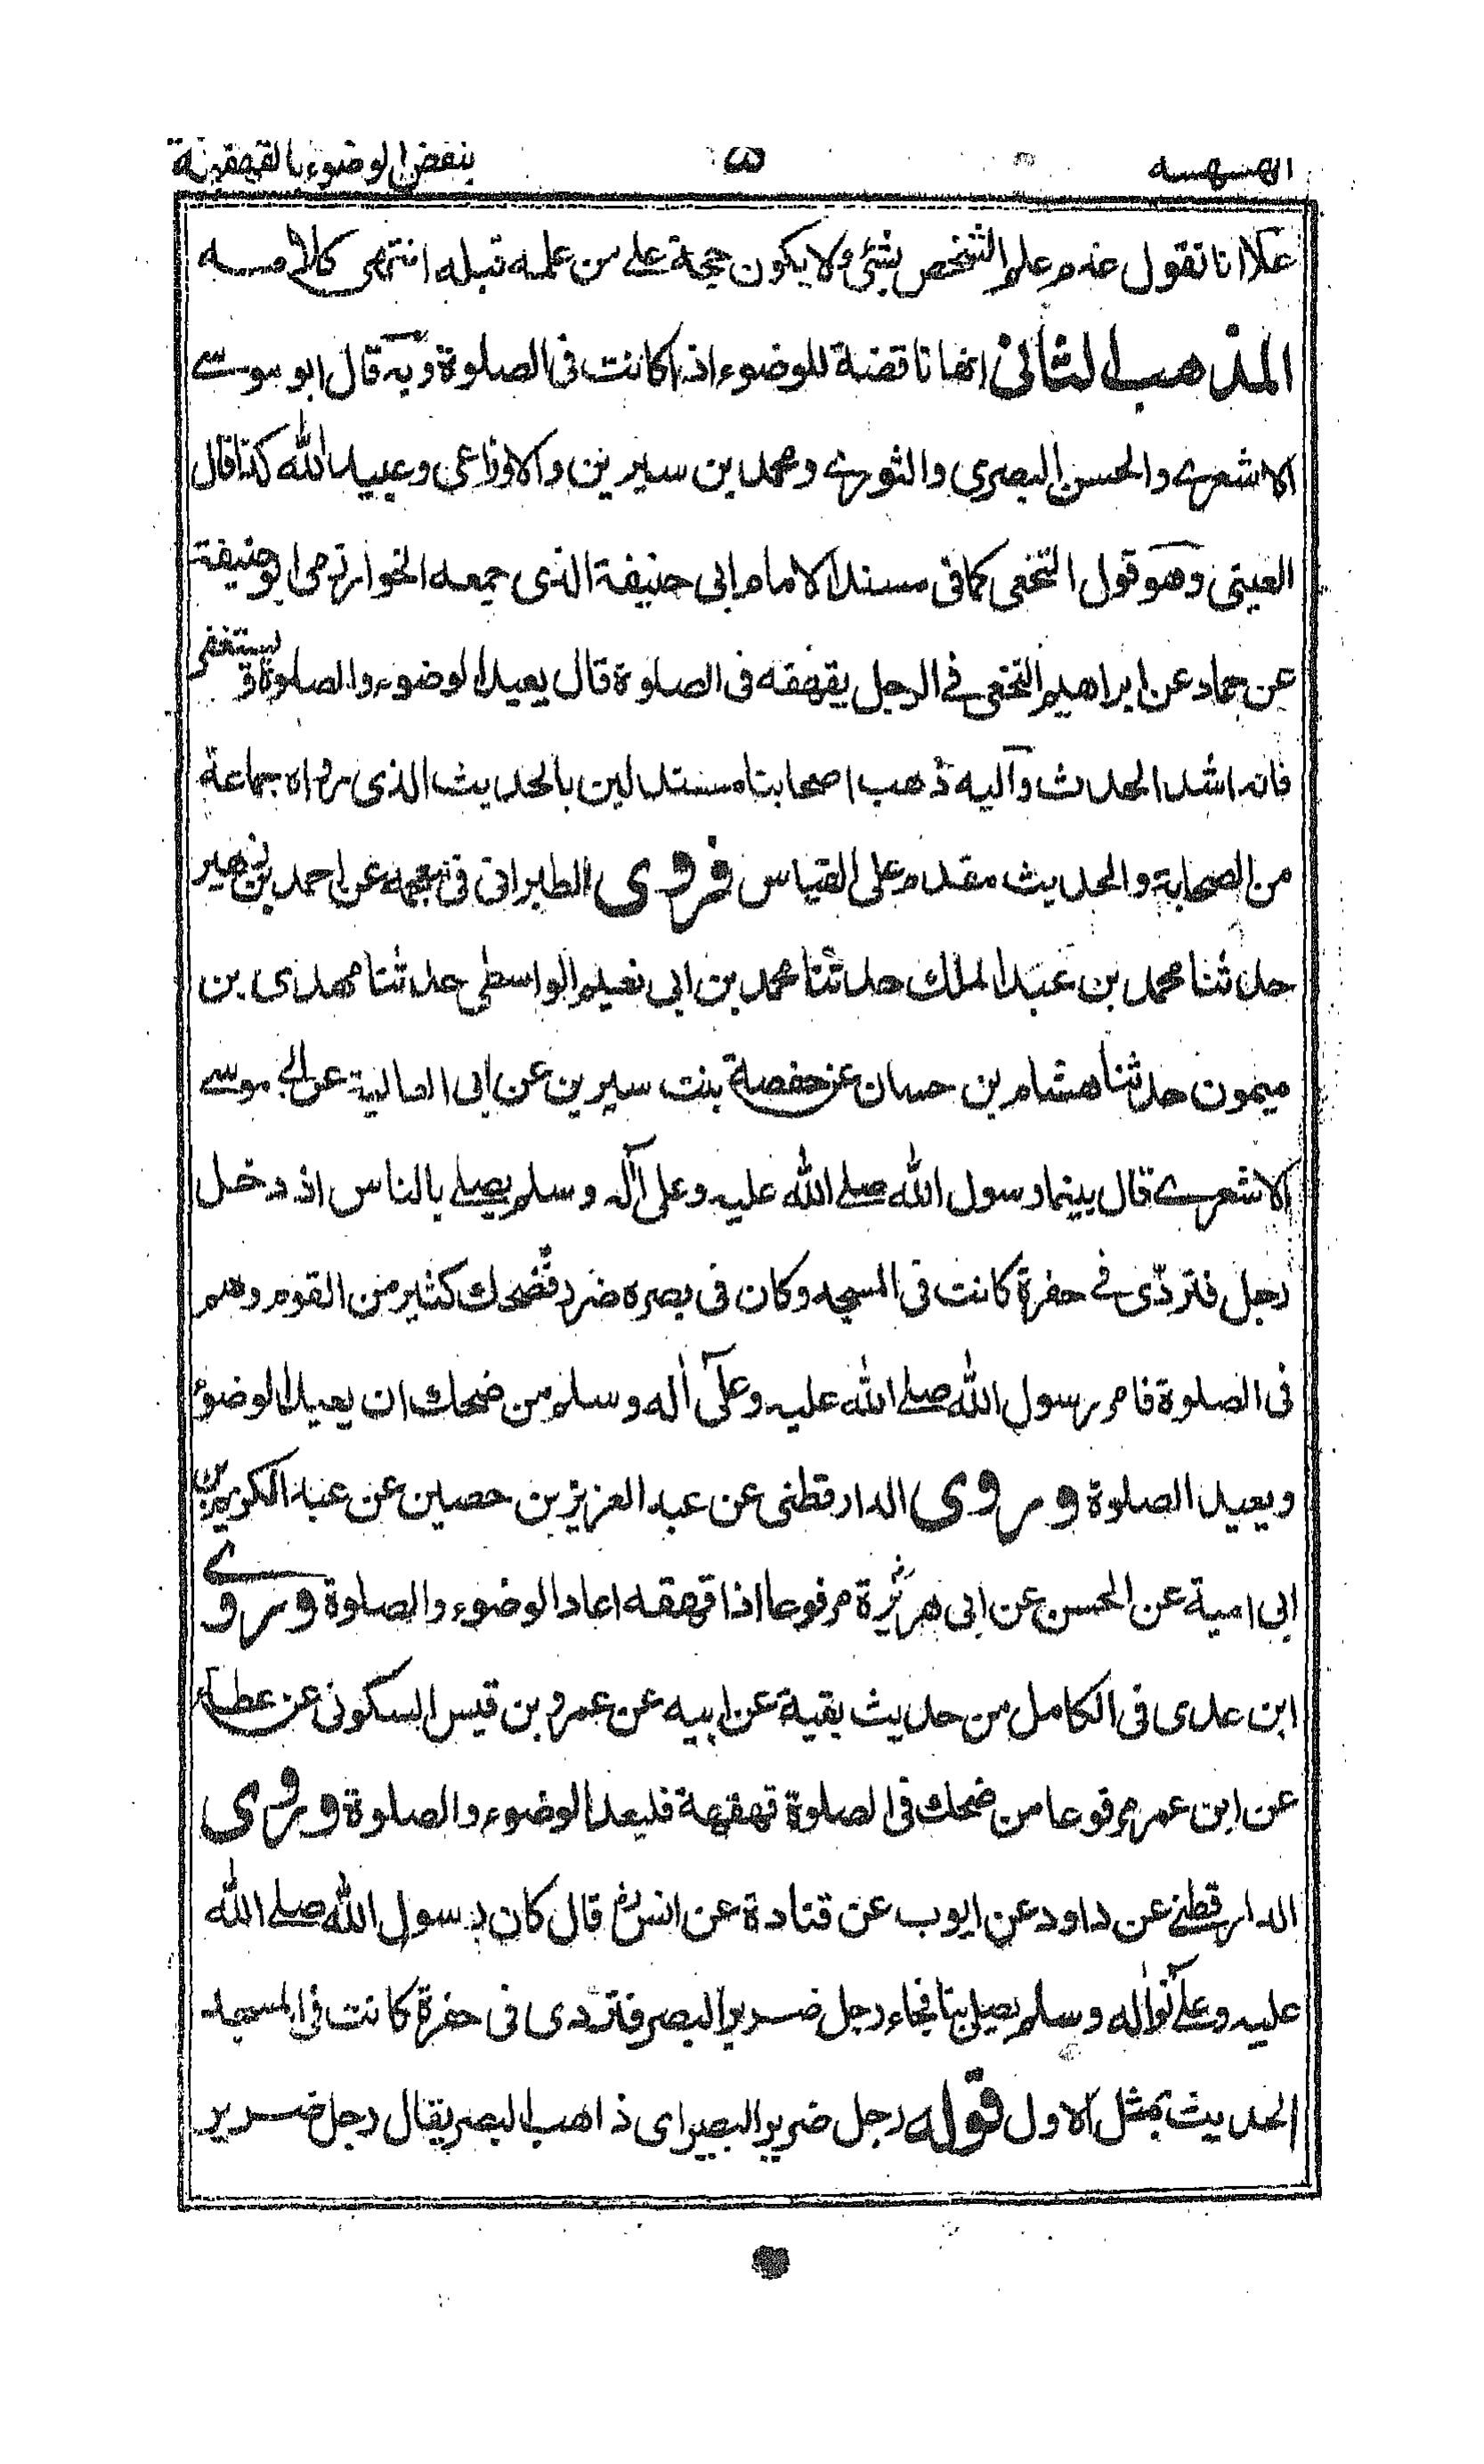 الهسهسه ۵ بنقض الوضوء بالقهقهة
علاانا نقول عدم علم الشخص بشئ ولا يكون حجة على من علمه قبله انتهى كلامه
المذهب الثانى انها ناقضة للوضوء اذا كانت فى الصلوة وبه قال ابو موسے
الاشعرے والحسن البصرى والثورے ومحمد بن سيرين والاوزاعى وعبيد الله كذا قال
العينى وهو قول النخعى كما فى مسند الامام ابى حنيفة الذى جمعه الخوارزمى ابو حنيفة
عن حماد عن ابراهيم النخعى فے الرجل يقهقه فى الصلوة قال يعيد الوضوء والصلوة ويستغفر
فانه اشد الحدث وآليه ذهب اصحابنا مستدلين بالحديث الذى رواه جماعة
من الصحابة والحديث مقدم على القياس فروى الطبرانى فى معجمه عن احمد بن زهير
حدثنا محمد بن عبد الملك حدثنا محمد بن ابى نعيم الواسطى حدثنا مهدى بن
ميمون حدثنا هشام بن حسان عن حفصة بنت سيرين عن ابى العالية عن ابى موسے
الاشعرے قال بينما رسول الله صلے الله عليه وعلى آله وسلم يصلے بالناس اذ دخل
رجل فتردّى فے حفرة كانت فى المسجد وكان فى بصره ضرر فضحك كثير من القوم وهم
فى الصلوة فامر رسول الله صلے الله عليه وعلى آله وسلم من ضحك ان يعيد الوضوء
ويعيد الصلوة وروى الدارقطنى عن عبد العزيز بن حصين عن عبد الكريم بن
ابى امية عن الحسن عن ابى هريرة مرفوعا اذا قهقه اعاد الوضوء والصلوة وروے
ابن عدى فى الكامل من حديث بقية عن ابيه عن عمرو بن قيس السكونى عن عطاء
عن ابن عمر مرفوعا من ضحك فى الصلوة قهقهة فليعد الوضوء والصلوة وروى
الدارقطنے عن داود عن ايوب عن قتادة عن انسؓ قال كان رسول الله صلے الله
عليه وعلے آله وسلم يصلى بنا فجاء رجل ضرير البصر فتردى فى حفرة كانت فى المسجد
الحديث بمثل الاول قوله رجل ضرير البصير اى ذاهب البصر يقال رجل ضرير